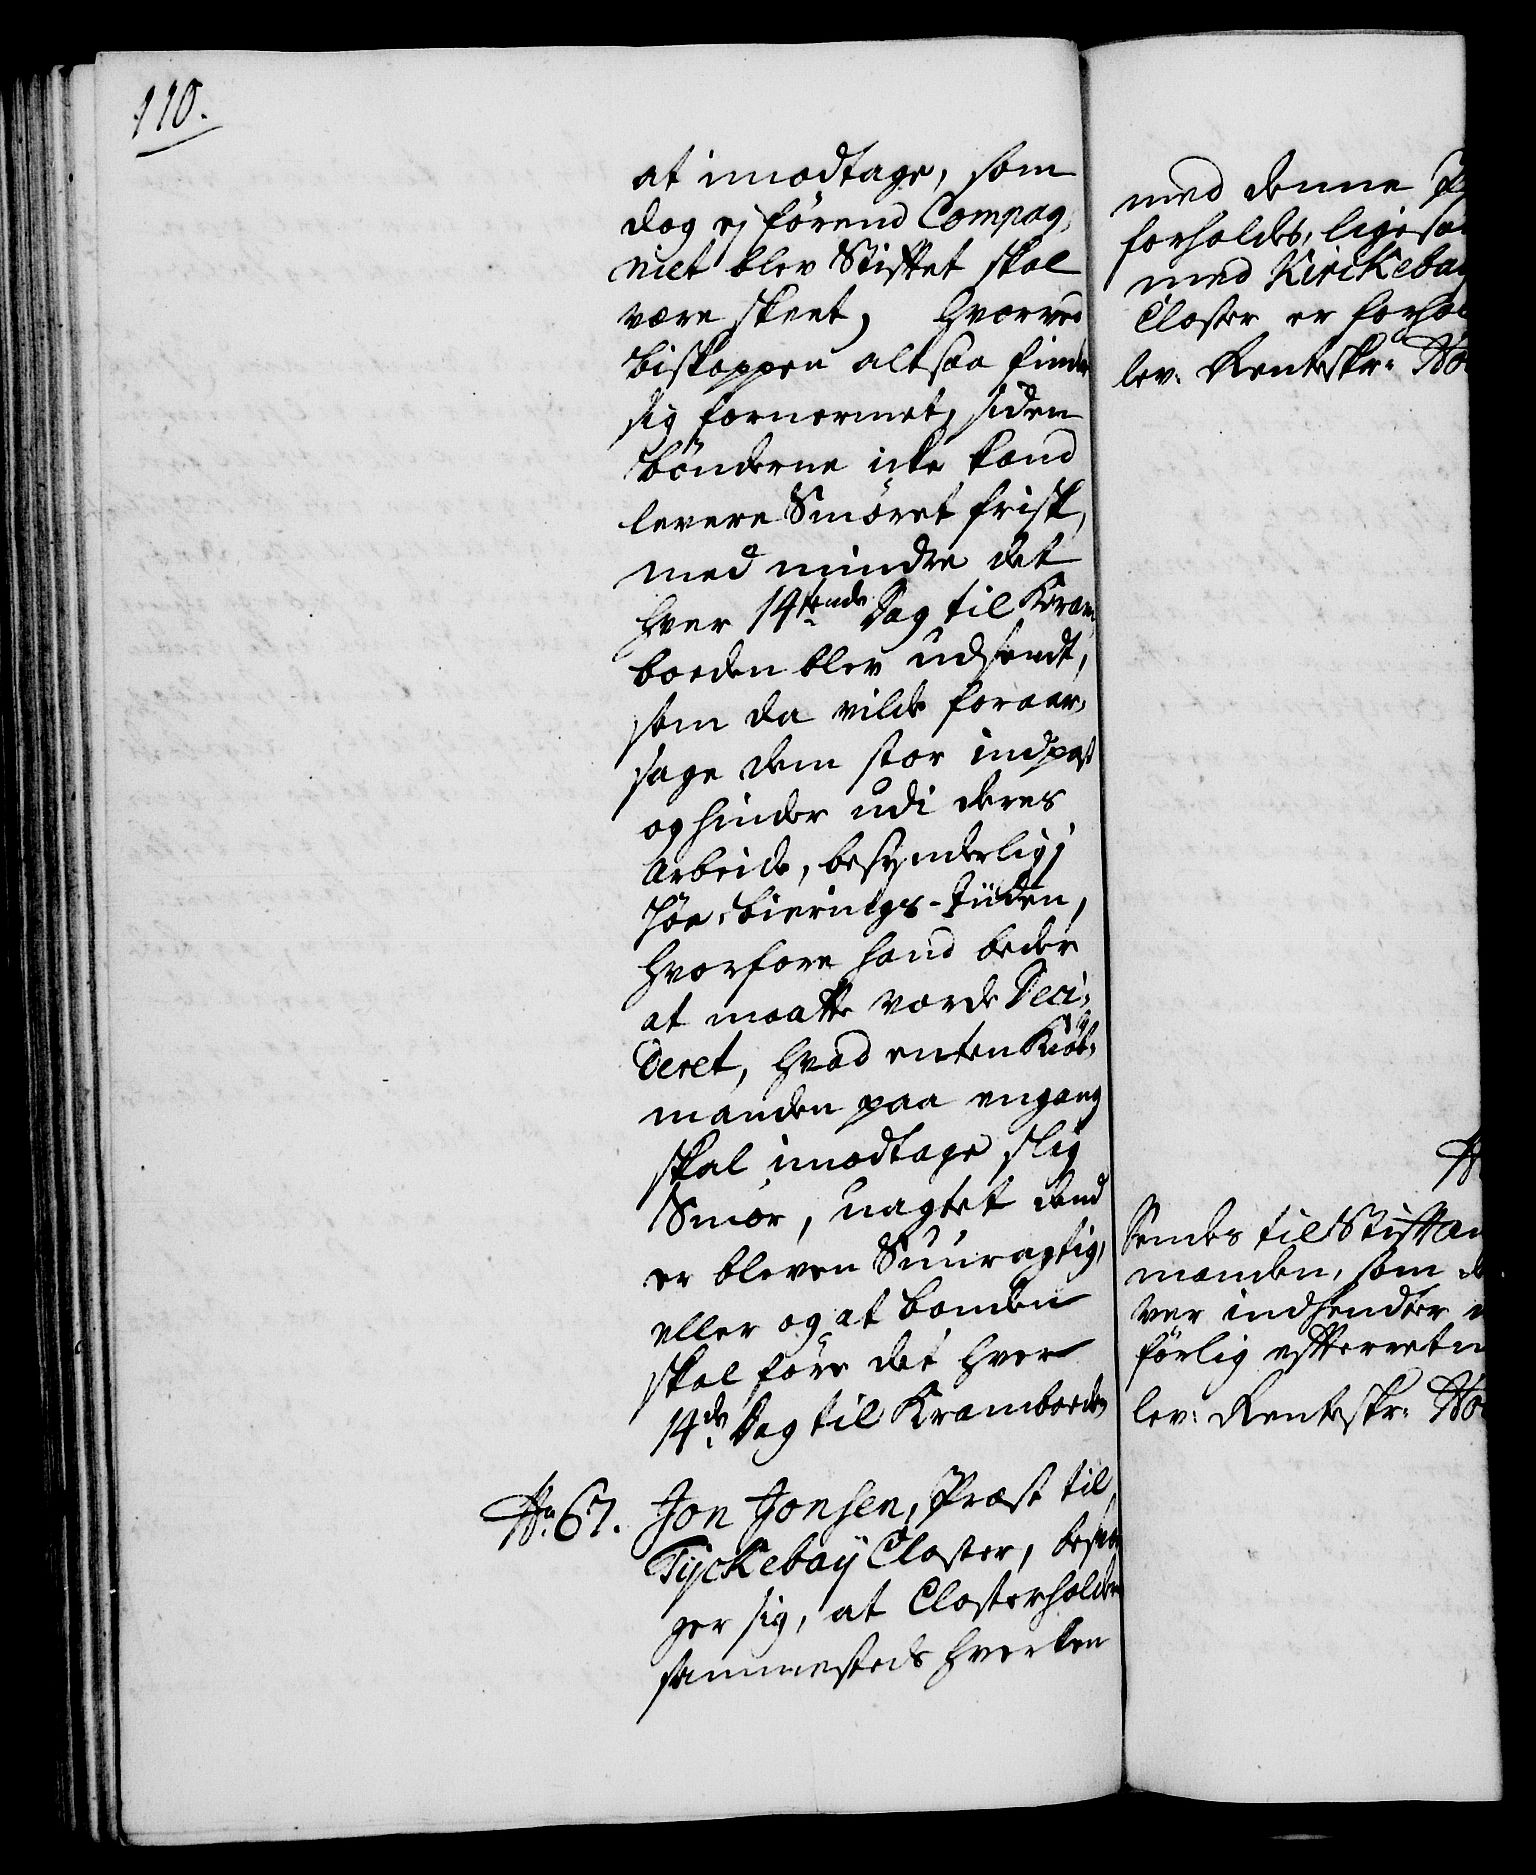 110.
at imodtage, som
dog ej förend Compag,
niet blev Stiftet skal
være skeet, hvorved
biskoppen altsaa finder
sig fornermet, siden
bönderne icke kand
levere Smöret frisk,
med mindre det
hver 14tende Dag til Kram,
boeden blev udsendt,
som da vilde foraar,
sage dem stor indpas
og hinder udi deres
Arbeide, besynderlig i
Höe-biernigs-Tiiden,
hvorfore hand beder
at maatte vorde Deci,
deret, hvad enten Kiöb,
manden paa engang
skal imodtage slig
Smör, uagtet dend
er bleven Suuragtig,
eller og at bonden
skal före det hver
14de Dag til Kramboeden
No 67. Jon Jonsen, Præst til
Tyckebaÿ Closter, besvæ
ger sig, at Closterholder
sammesteds hverken
med denne
forholdes, ligesom
med Kirckebaÿ
Closter er forhol
lev: Renteskr:
Sendes til Stiftam
manden, som
ver indhendter
förlig efterretn
lev: Renteskr: